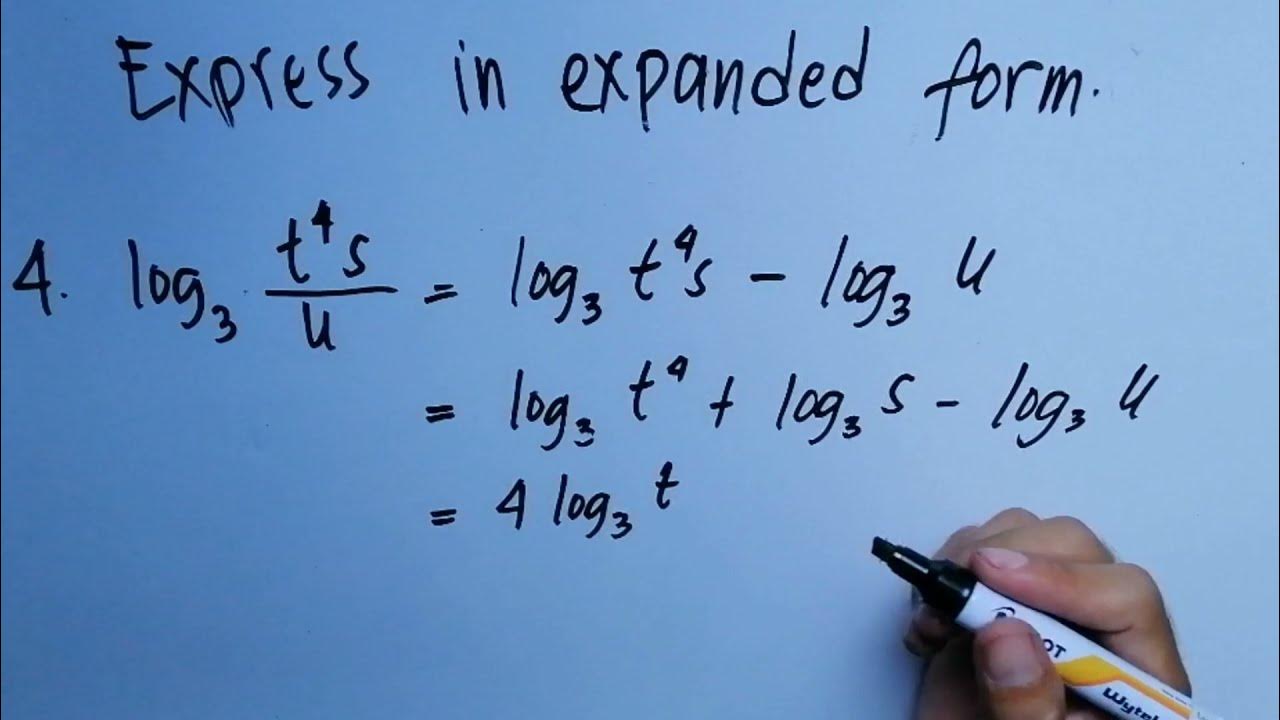 Express in expanded form.
4. log₃ t⁴s/u = log₃ t⁴s - log₃ u
= log₃ t⁴ + log₃ s - log₃ u
= 4 log₃ t